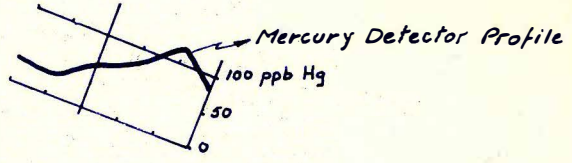 Mercury Detector Profile
100 ppb Hg
50
0